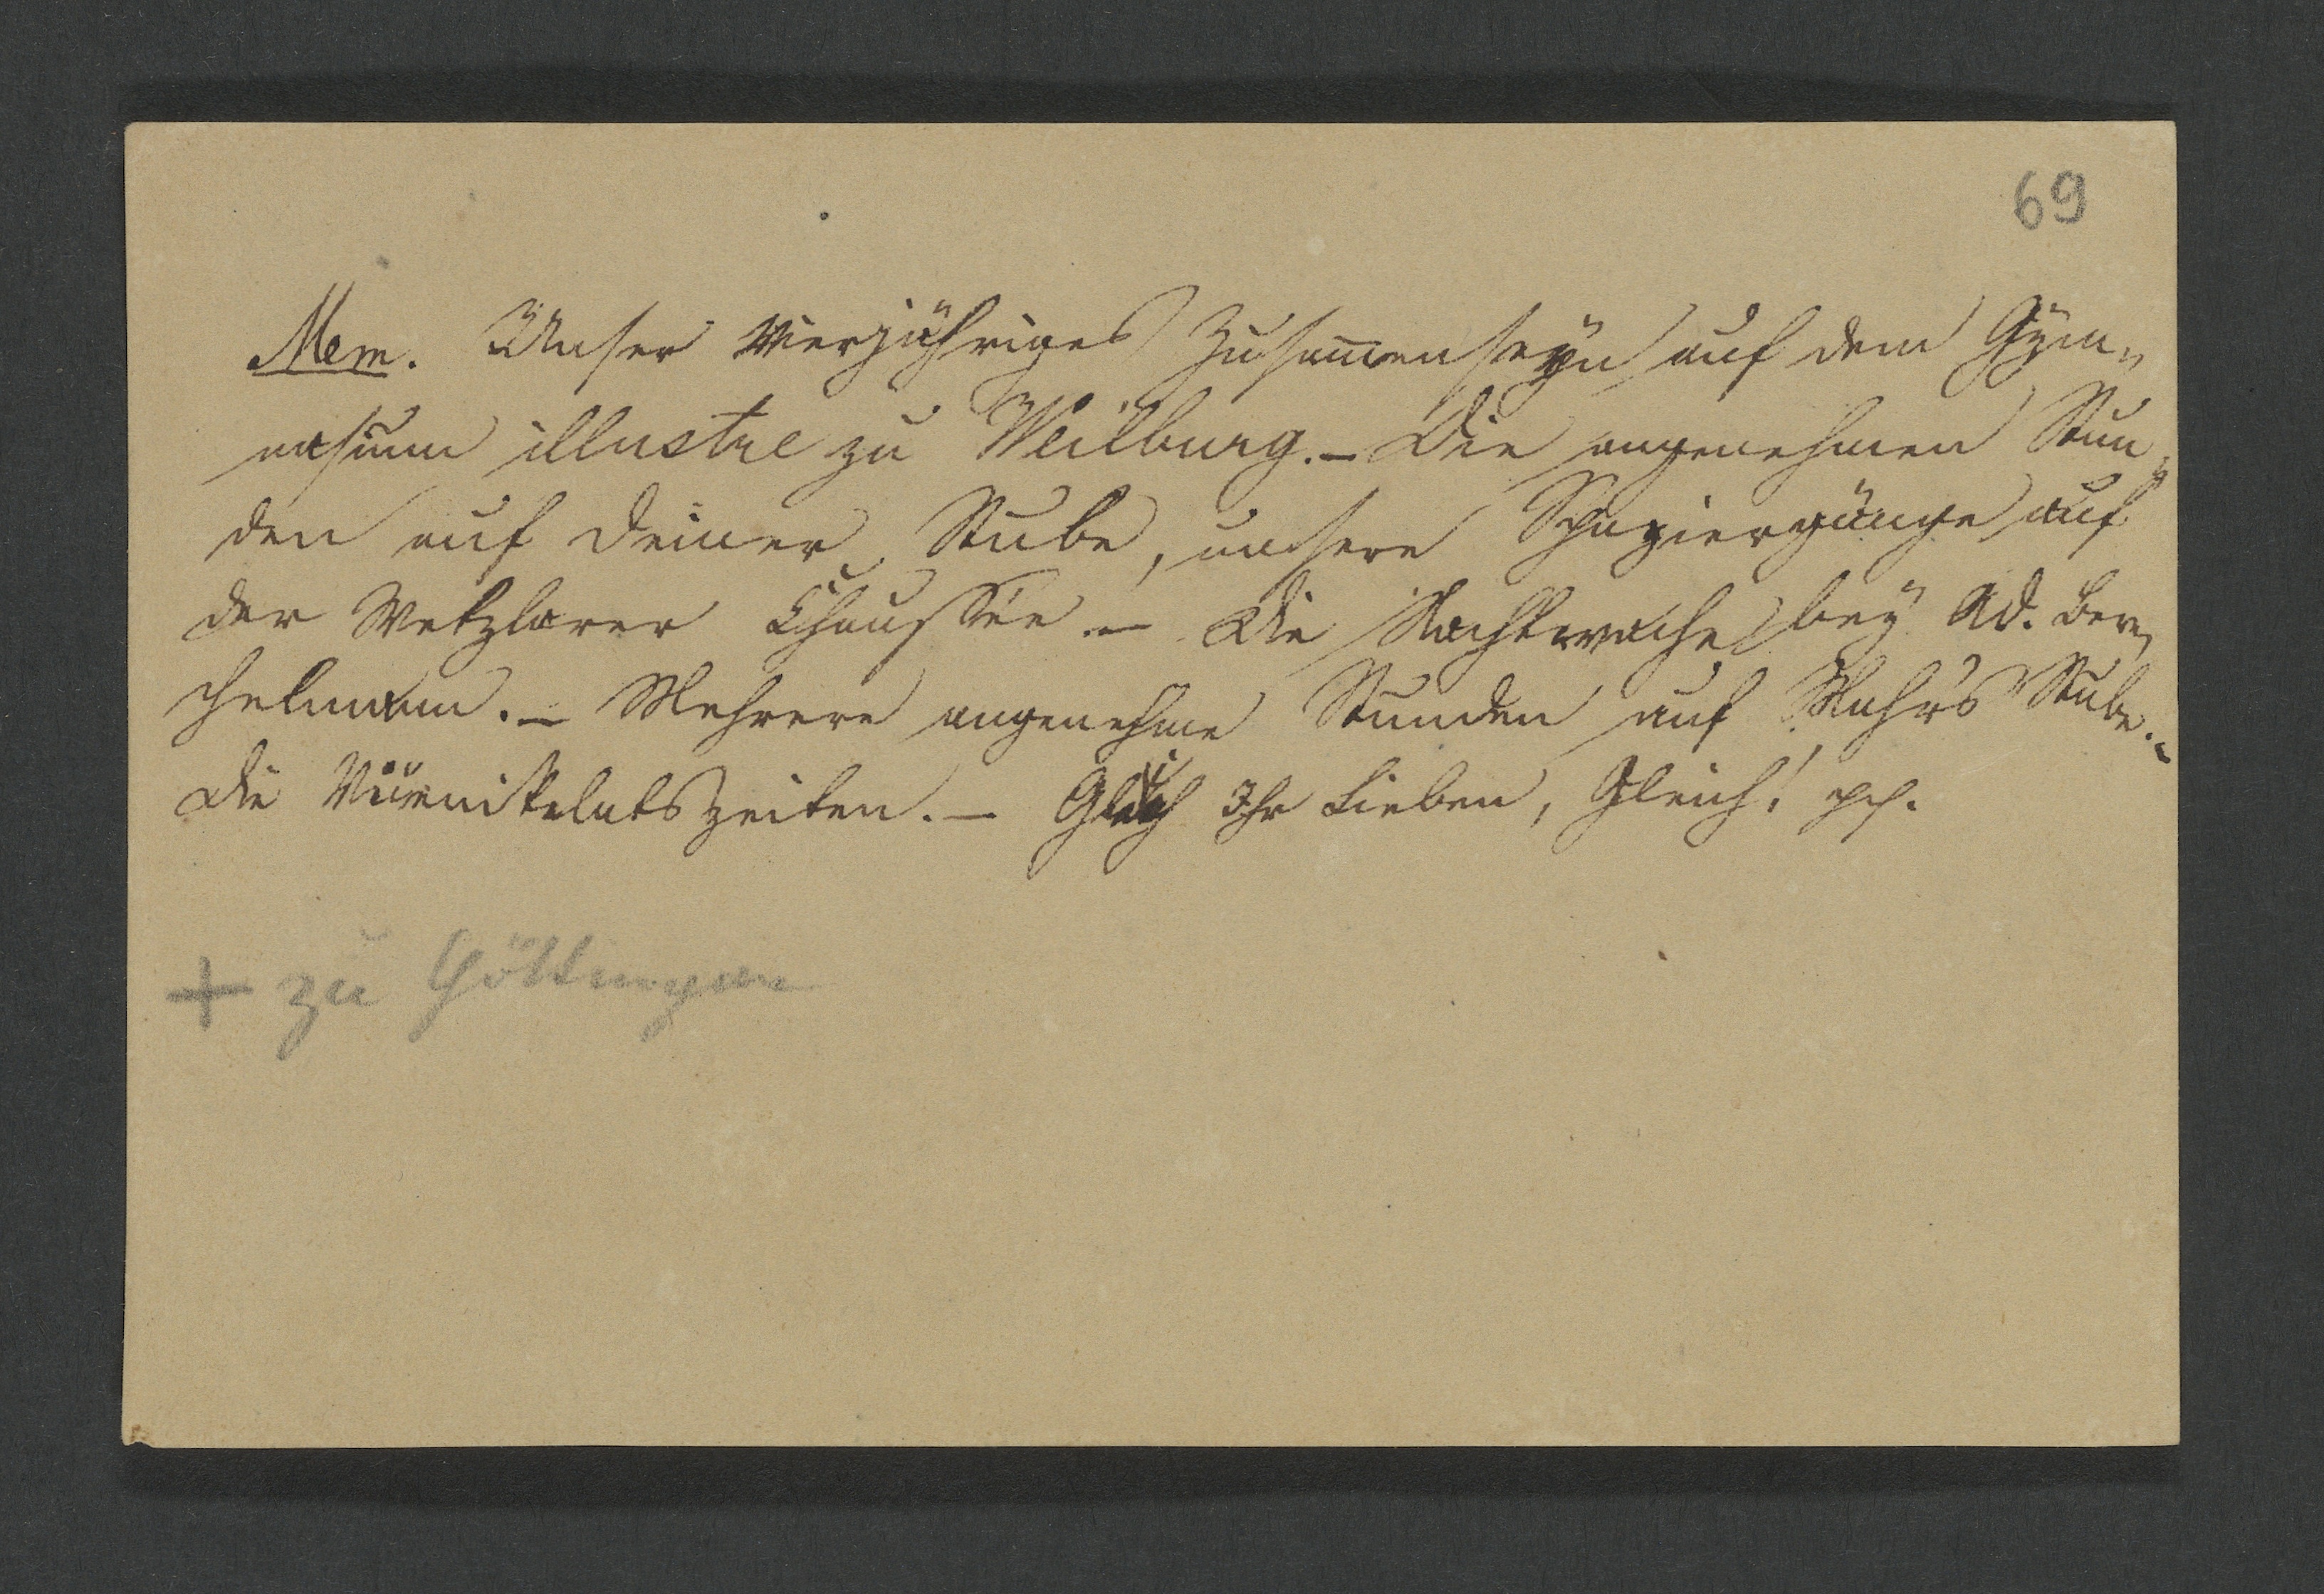 69
Mem. Unser vierjähriges Zusammenseyn auf dem Gym„
nasium illustre zu Weilburg. – Die angenehmen Stun„
den auf Deiner Stube, unsere Spaziergänge auf
der Wetzlarer Chaussée – Die Nachtwache bey Ad. Ber„
chelmann. – Mehrere angenehme Stunden auf Stube. –
Die zeiten. – Gleich Ihr Lieben, Gleich! pp.
+ zu Göttingen